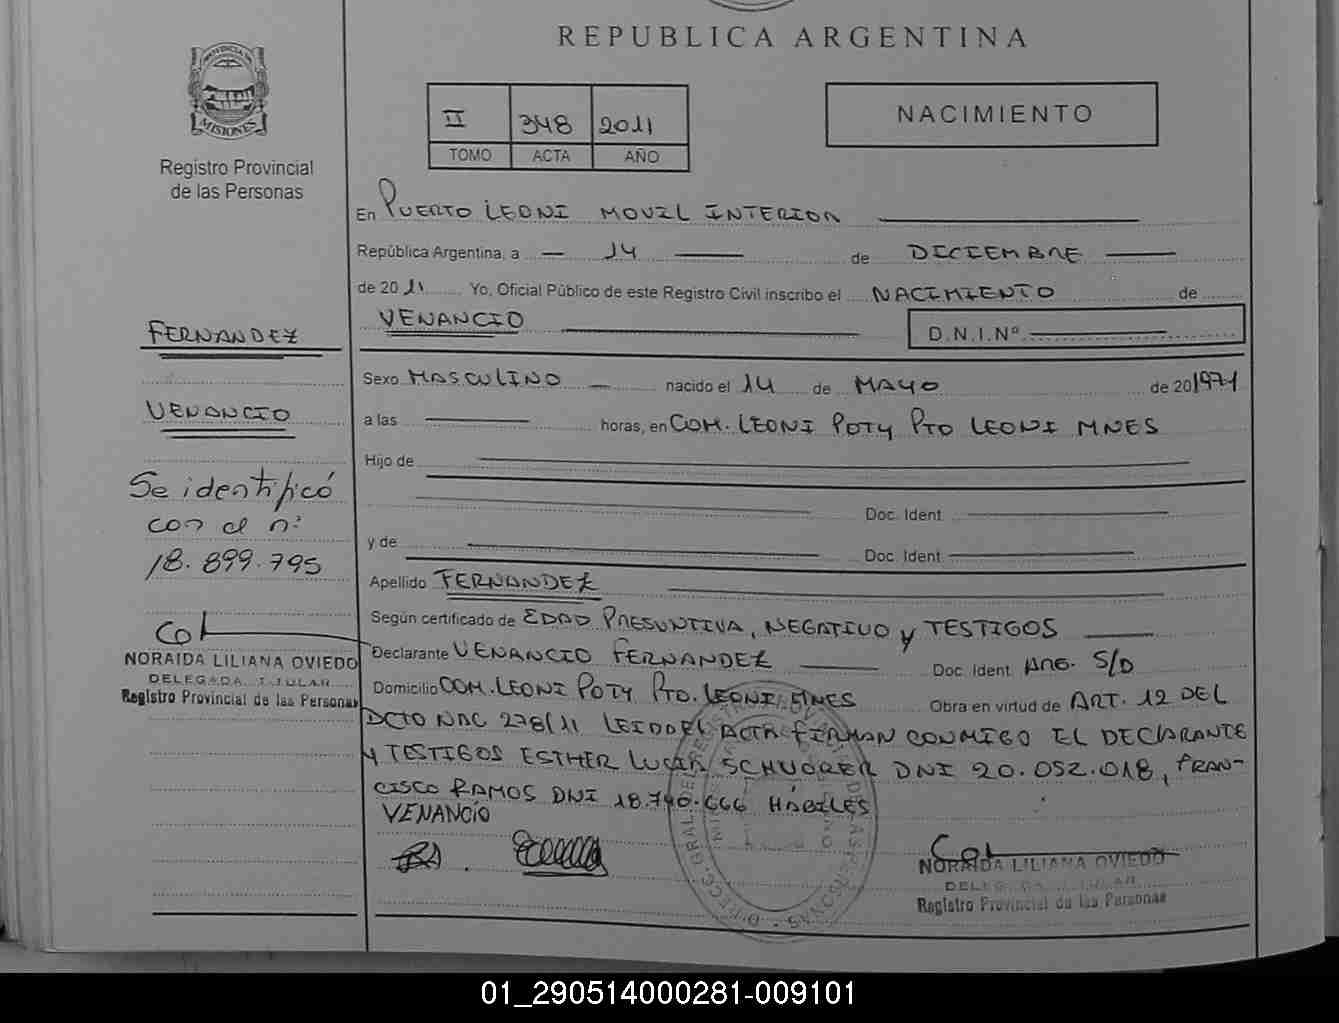 REPUBLICA ARGENTINA
PROVINCIA DE
MISIONES
Registro Provincial
de las Personas
II 348 2011
TOMO ACTA AÑO
NACIMIENTO
En PUERTO LEONI MOVIL INTERIOR
República Argentina, a 14 de DICIEMBRE
de 2011 Yo, Oficial Público de este Registro Civil inscribo el NACIMIENTO de
VENANCIO D.N.I.Nº
FERNANDEZ
VENANCIO
Se identificó
con el nº
18.899.795
NORAIDA LILIANA OVIEDO
DELEGADA TITULAR
Registro Provincial de las Personas
Sexo MASCULINO nacido el 14 de MAYO de 201971
a las horas, en COM. LEONI POTY PTO LEONI MNES
Hijo de
Doc. Ident.
y de Doc. Ident.
Apellido FERNANDEZ
Según certificado de EDAD PRESUNTIVA, NEGATIVO y TESTIGOS
Declarante VENANCIO FERNANDEZ Doc. Ident. ARG. S/D
Domicilio COM. LEONI POTY PTO. LEONI MNES Obra en virtud de ART. 12 DEL
DCTO NAC 278/11 LEIDO EL ACTA FIRMAN CONMIGO EL DECLARANTE
Y TESTIGOS ESTHER LUCIA SCHUORER DNI 20.052.018, FRAN-
CISCO RAMOS DNI 18.740.666 HÁBILES
VENANCÍO
NORAIDA LILIANA OVIEDO
DELEGADA TITULAR
Registro Provincial de las Personas
01_290514000281-009101